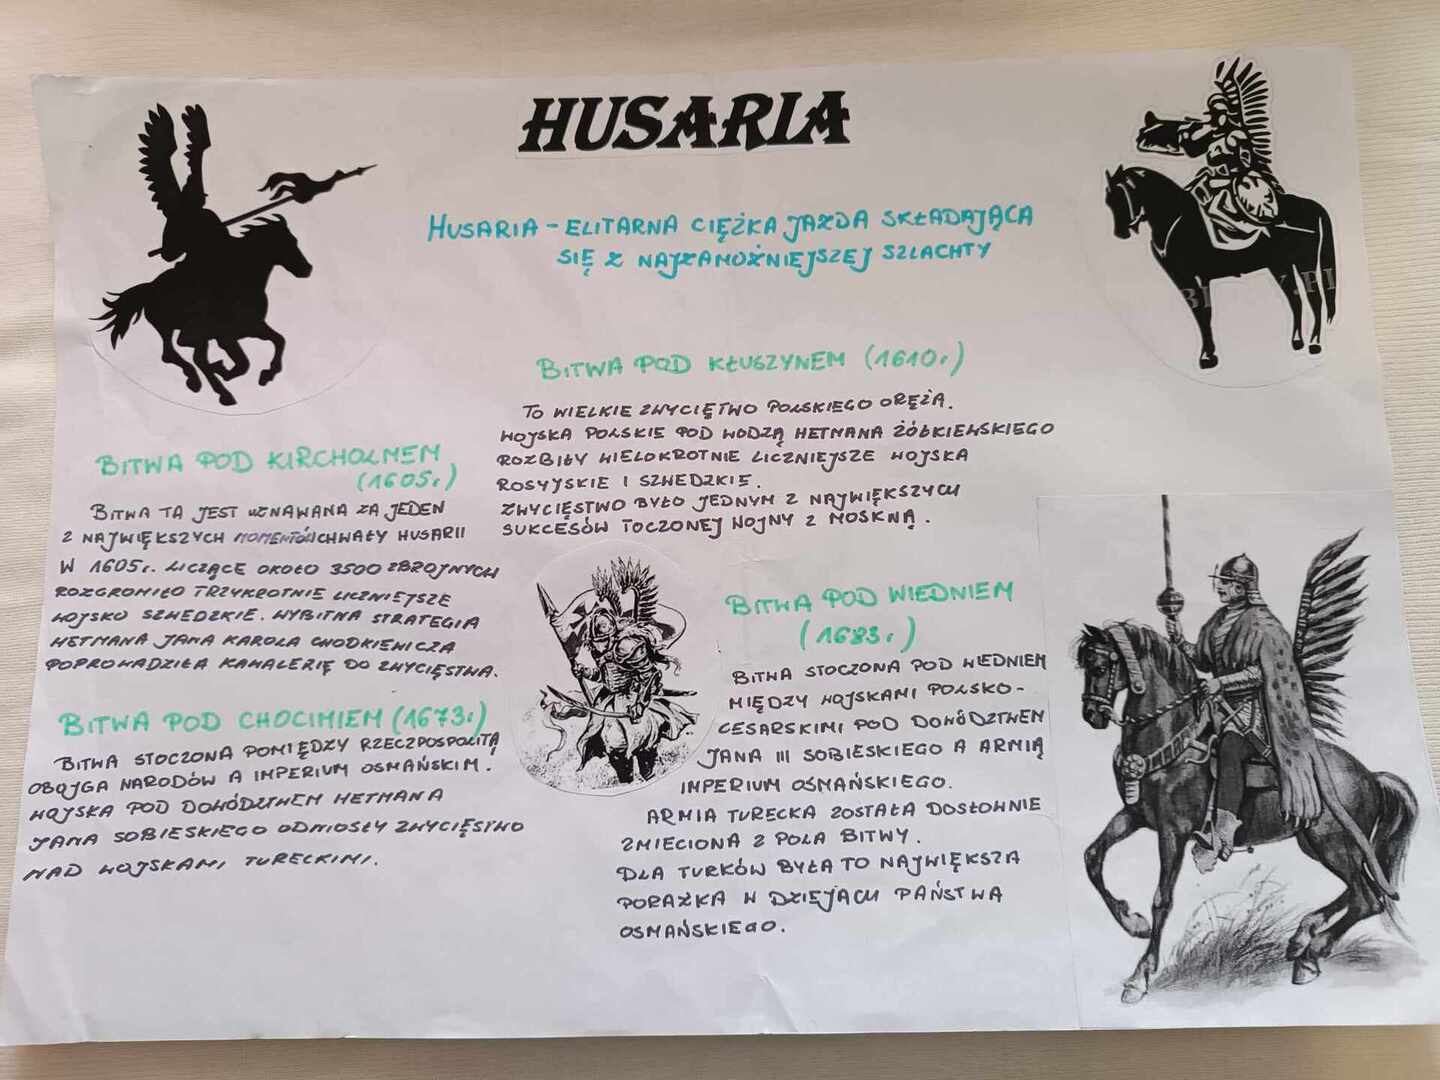 HUSARIA
HUSARIA – ELITARNA CIĘŻKA JAZDA SKŁADAJĄCA
SIĘ Z NAJZAMOŻNIEJSZEJ SZLACHTY
BITWA POD KŁUSZYNEM (1610r)
TO WIELKIE ZWYCIĘTWO POLSKIEGO ORĘŻA.
WOJSKA POLSKIE POD WODZĄ HETMANA ŻÓŁKIEWSKIEGO
ROZBIŁY WIELOKROTNIE LICZNIEJSZE WOJSKA
ROSYJSKIE I SZWEDZKIE.
ZWYCIĘSTWO BYŁO JEDNYM Z NAJWIĘKSZYCH
SUKCESÓW TOCZONEJ WOJNY Z MOSKWĄ.
BITWA POD KIRCHOLMEM
(1605r)
BITWA TA JEST UZNAWANA ZA JEDEN
Z NAJWIĘKSZYCH MOMENTÓW CHWAŁY HUSARII
W 1605r. LICZĄCE OKOŁO 3500 ZBROJNYCH
ROZGROMIŁO TRZYKROTNIE LICZNIEJSZE
WOJSKO SZWEDZKIE. WYBITNA STRATEGIA
HETMANA JANA KAROLA CHODKIEWICZA
POPROWADZIŁA KAWALERIĘ DO ZWYCIĘSTWA.
BITWA POD CHOCIMIEM (1673r)
BITWA STOCZONA POMIĘDZY RZECZPOSPOLITĄ
OBOJGA NARODÓW A IMPERIUM OSMAŃSKIM.
WOJSKA POD DOWÓDZTWEM HETMANA
JANA SOBIESKIEGO ODNIOSŁY ZWYCIĘSTWO
NAD WOJSKAMI TURECKIMI.
BITWA POD WIEDNIEM
(1683r)
BITWA STOCZONA POD WIEDNIEM
MIĘDZY WOJSKAMI POLSKO-
CESARSKIMI POD DOWÓDZTWEM
JANA III SOBIESKIEGO A ARMIĄ
IMPERIUM OSMAŃSKIEGO.
ARMIA TURECKA ZOSTAŁA DOSŁOWNIE
ZMIECIONA Z POLA BITWY.
DLA TURKÓW BYŁA TO NAJWIĘKSZA
PORAŻKA W DZIEJACH PAŃSTWA
OSMAŃSKIEGO.